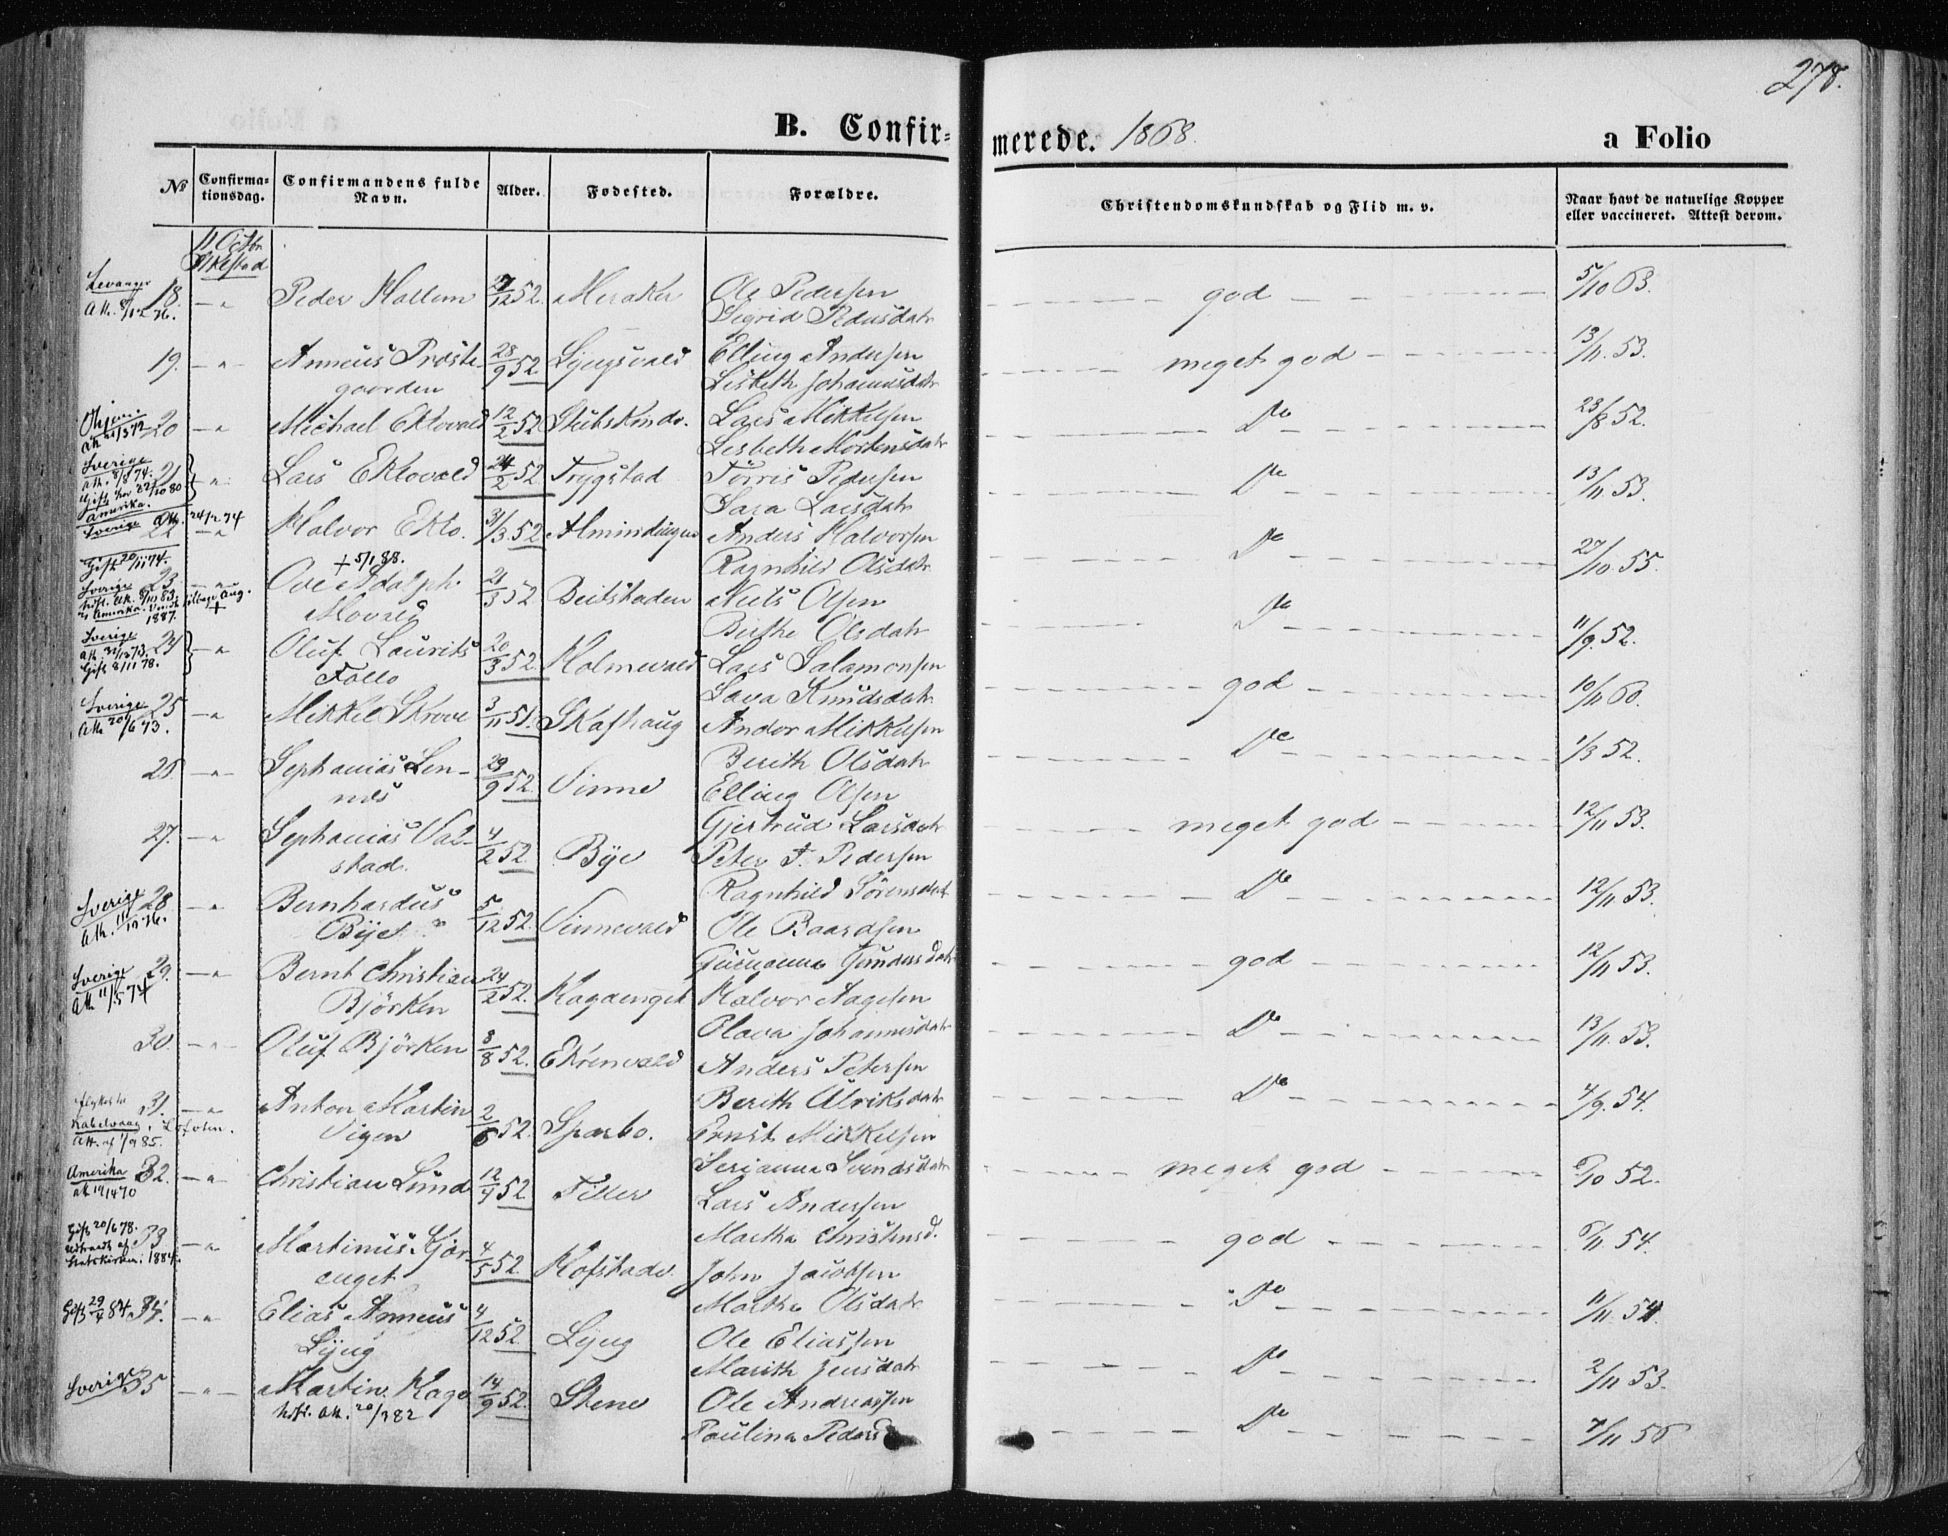 278.
B. Confir=
merede. 1868.
a Folio
No
Confirma-
tionsdag.
Confirmandens fulde
Navn.
Alder.
Fødested.
Forældre.
Christendomskundskab og Flid m. v.
Naar havt de naturlige Kopper
eller vaccineret. Attest derom.
11 Octbr
Levanger
Att. 8/12 76.
18. — " Peder Hallem 27/12 52. Meraker Ole Pedersen
Sigrid Pedersdatr
god 5/10 63.
19. — " — Anneus Præste-
gaarden 28/9 52. Ljugsvald Elling Andersen
Lisbeth Johannesdatr
meget god 13/11. 53.
20 — " Michael Eklovald 12/2 52 Lars Mikkelsen
Lisbeth Mortensdatr
Do 23/8 52.
Sverige
Att. 8/8 74.
Gift 22/10 80
Amerika.
21 — " Lars Eklovald 24/2 52 Trygstad Törris Pedersen
Sara Larsdatr
Do 13/11 53.
Sverige Att. 24/2 74
22 — " Halvor Eklo. 31/3. 52. Almindingen Anders Halvorsen
Ragnhild Olsdatr
Do 27/10. 55.
Gift 20/11 74.
Sverige
+ 5/1 88.
23 — " Ove Adalph
Movald 21/3 52 Beitstaden Niels Olsen
Birthe Olsdatr
Do 11/9. 52.
Sverige
Att. 31/12 73.
Gift 8/11 78.
24 — " Oluf Laurits
Follo 20/3 52. Holmevald Lars Salamonsen
Sava Knudsdatr
god 10/11 60.
Sverige
Att. 20/6 73.
25 — " Mikkel Skrove 3/11 51. Skafhaug Andor Mikkelsen
Berith Olsdatr
Do 1/3 52.
26 — " Sephanias Len-
nes 29/9 52. Vinne Elling Olsen
Gjertrud Larsdatr
meget god 12/11 53.
27. — " Sephanias Val-
stad. 4/2 52. Bye Peter T. Pedersen
Ragnhild Sörensdat
Do 12/11 53.
Sverige
Att. 11/10 76.
28 — " Bernhardus
Byet 5/12 52. Vinnevald Ole Baardsen
Gundersdatr
god 12/11 53.
Sverige
Att. 11/5 74
29. — " Bernt Christian
Björken 24/2 52. Hagaenget Halvor Aagesen
Olava Johannesdatr
Do 13/11. 53.
30. — " Oluf Björken 8/8 52. Ekrenvald Anders Petersen
Berith Ulriksdatr
Do 4/9. 54.
Kabelvaag i Lofoten.
Att. af 1/9 85.
31. — " Anton Martin
Vigen 2/6 52. Sparbo. Ernst Mikkelsen
Serianna Svendsdatr
meget god 52.
Amerika
32. — " Christian Lund 12/4 52. Tiller Lars Andersen
Martha Christensd.
god 54.
Gift 20/6 78.
Udtraadt af
Statskirken i 1884.
33 — " Martinus Gjör-
enget 4/5 52. Hofstadv. John Jacobsen
Martha Olsdatr
Do 11/11. 54.
Gift 29/4 84.
34. — " Elias Anneus
Ljug 4/12 52. Ljug Ole Eliassen
Marith Jensdatr
Do 2/11 53.
Sverige
35 — " — Martin Haga 14/9 52. Stene Ole Andreassen
Att. 20/3 82
Paulina Peders
Do 7/11 56